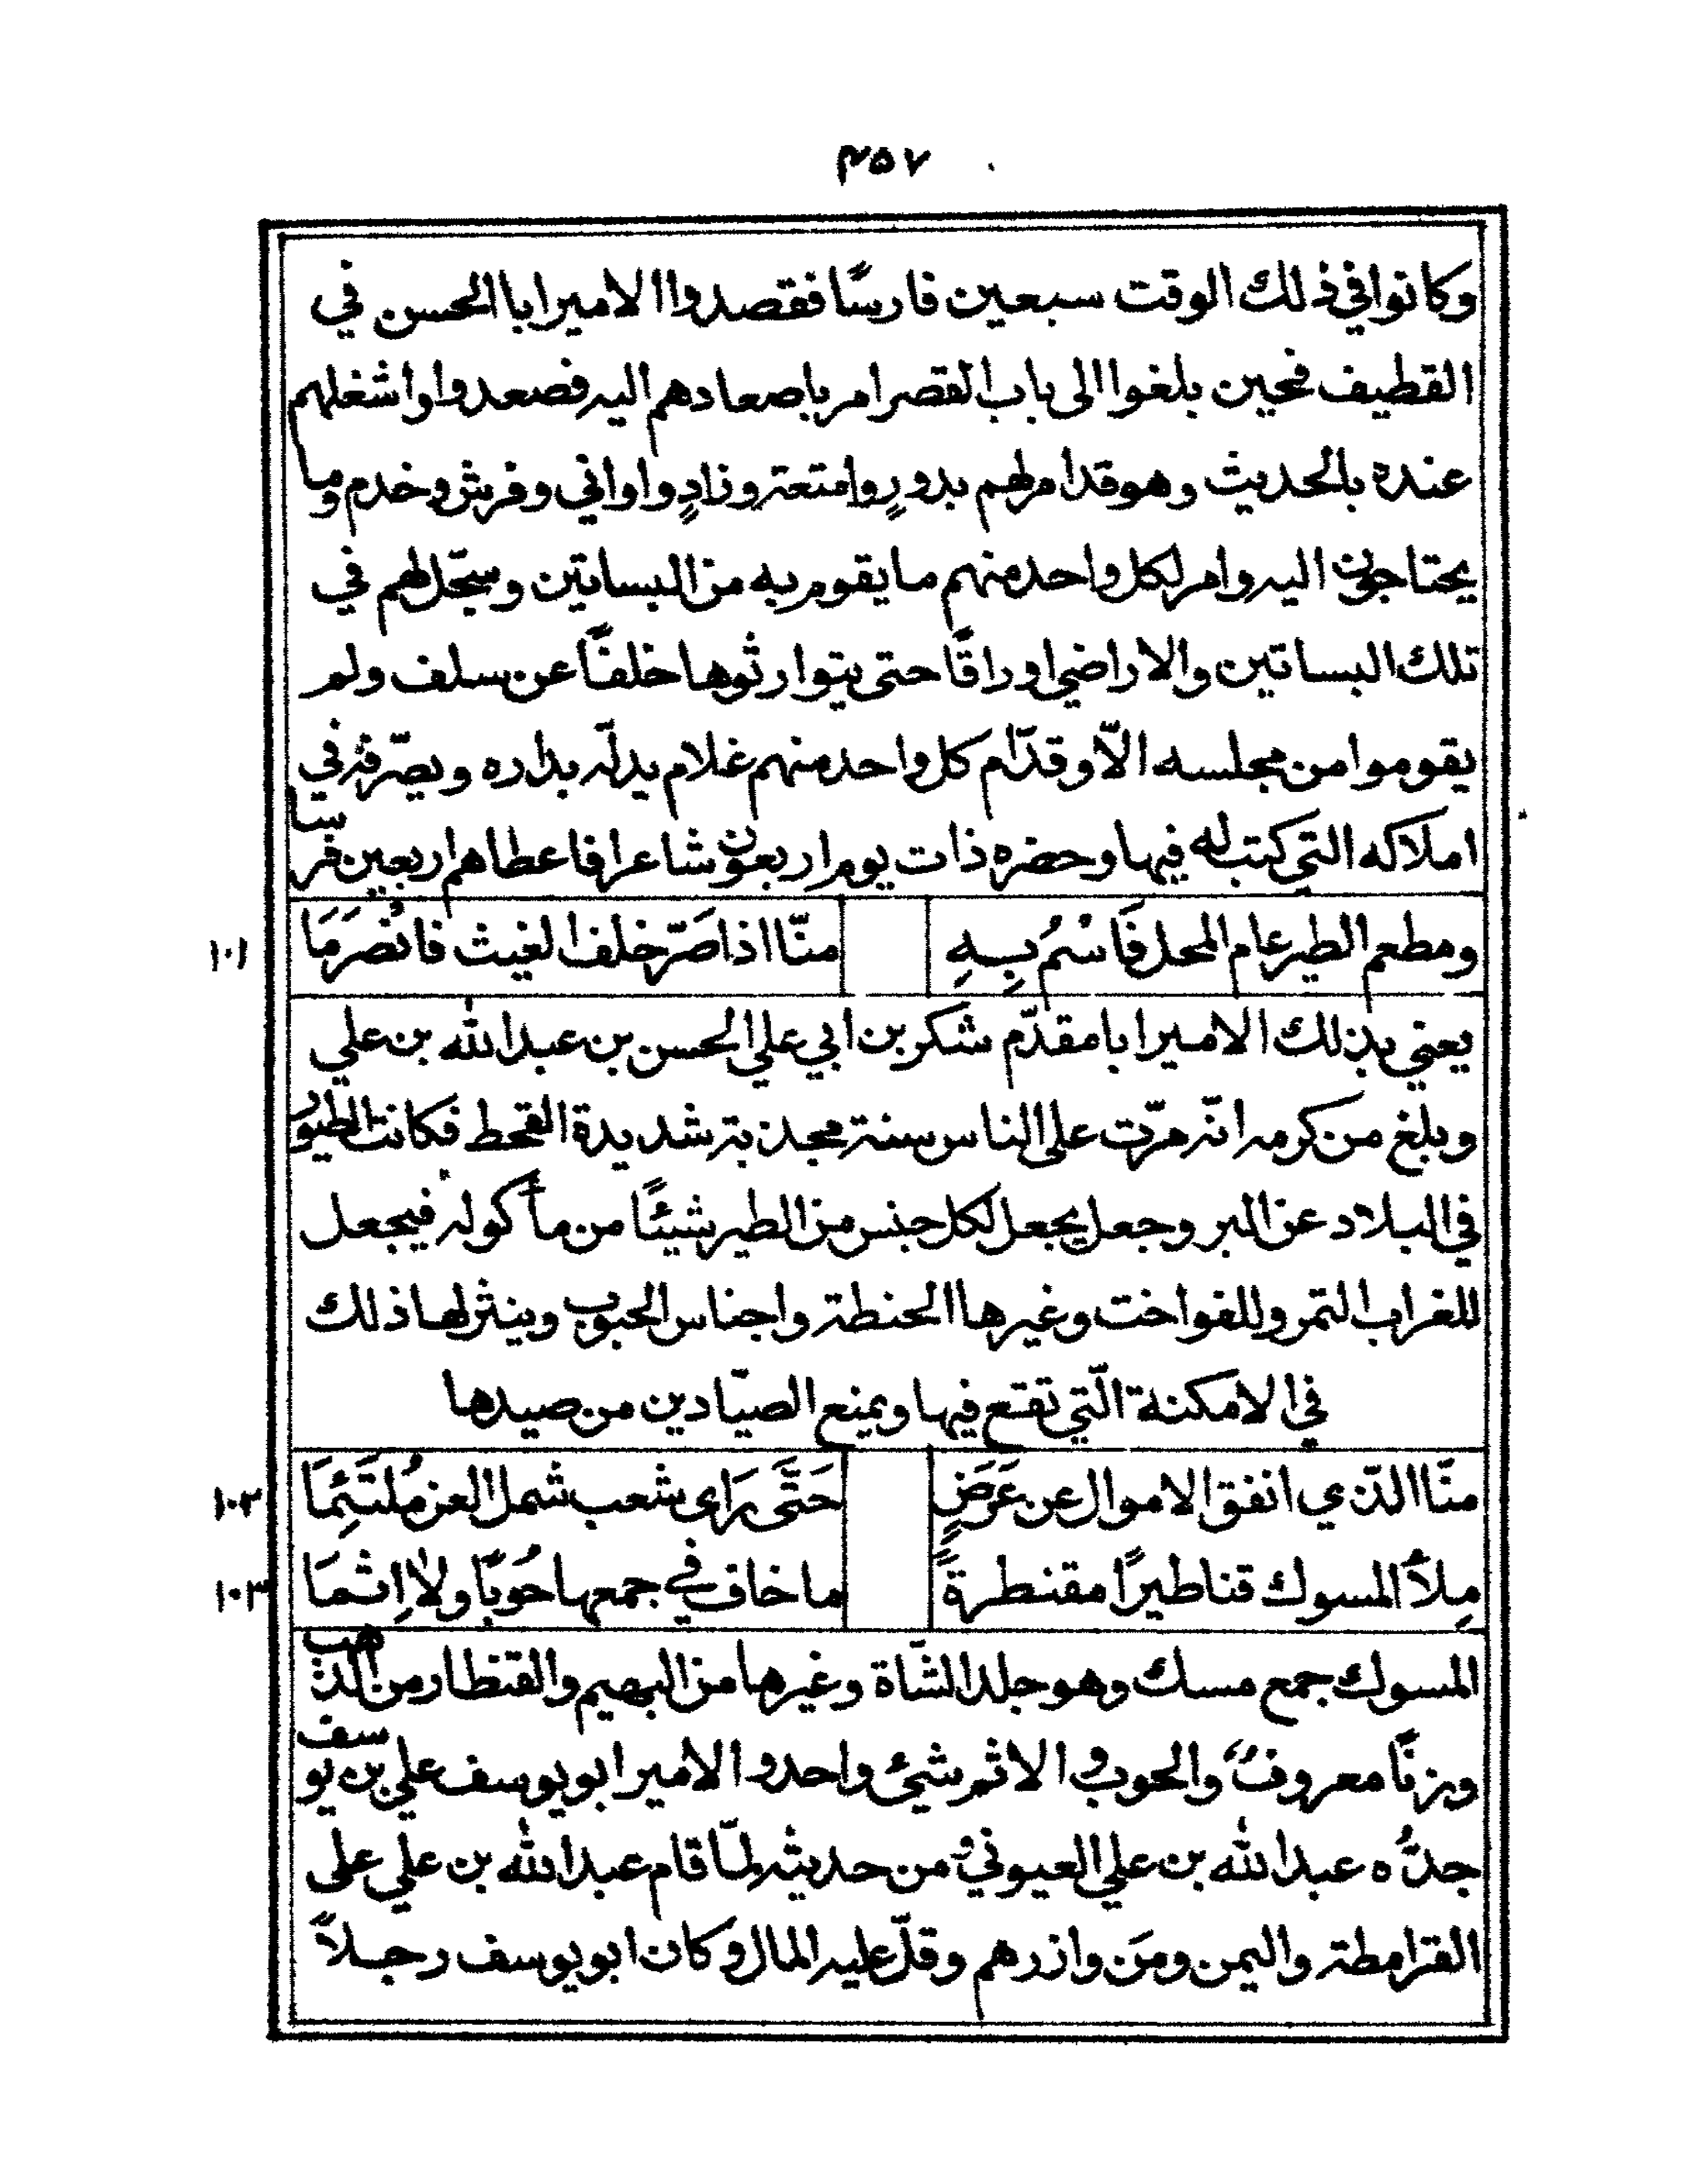 ٤٥٧
وكانوا في ذلك الوقت سبعين فارسًا فقصدوا الامير ابا الحسن في
القطيف فحين بلغوا الى باب القصر امر باصعادهم اليه فصعدوا واشغلهم
عنده بالحديث وهو قد امر لهم بدورٍ وامتعة وزادٍ واواني وفرش وخدم وما
يحتاجون اليه وامر لكل واحد منهم ما يقوم به من البساتين وسجّل لهم في
تلك البساتين والاراضي اوراقًا حتى يتوارثوها خلفًا عن سلف ولم
يقوموا من مجلسه الّا وقدّام كل واحد منهم غلام يدلّه بداره ويصرّفه في
املاكه التي كتب له فيها وحضره ذات يوم اربعون شاعرا فاعطاهم اربعين فرسًا
ومطعم الطير عام المحل فَاسْمُ بِهِ منّا اذا صَرّ خلف الغيث فانْصَرَمَا ١٠١
يعني بذلك الامير ابا مقدّم شكر بن ابي علي الحسن بن عبد الله بن علي
وبلغ من كرمه انّه مرّت على الناس سنة مجدبة شديدة القحط فكانت الطيور
في البلاد عن البر وجعل يجعل لكل جنس من الطير شيئًا من مأكوله فيجعل
للغراب التمر وللفواخت وغيرها الحنطة واجناس الحبوب وينثر لها ذلك
في الامكنة الّتي تقع فيها ويمنع الصيّادين من صيدها
منّا الذي انفق الاموال عن عَرَضٍ حَتَّى رَاى شعب شمل العز مُلتَئِمَا ١٠٢
مِلأَ المسوك قناطيرًا مقنطرةً ما خاف في جمعها حُوبًا ولا اِثمَا ١٠٣
المسوك جمع مسك وهو جلد الشّاة وغيرها من البهيم والقنطار من الذهب
وزنًا معروفٌ والحوب والاثم شيئ واحد والامير ابو يوسف علي بن يوسف
جدُّه عبد الله بن علي العيوني من حديثه لمّا قام عبد الله بن علي على
القرامطة واليمن ومَن وازرهم وقلّ عليه المال وكان ابو يوسف رجلاً